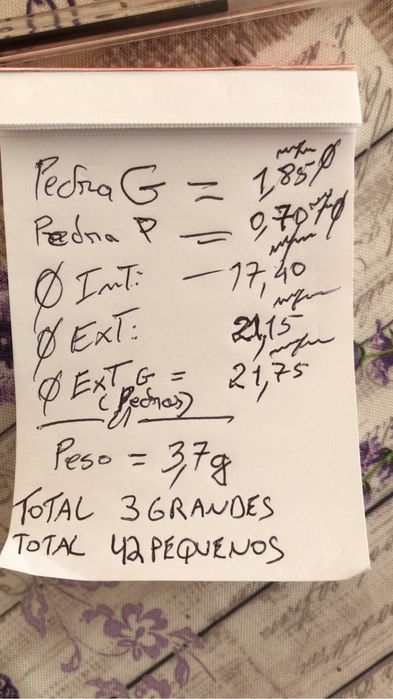 Pedra G = 1,85 m/m Ø
Pedra P = 0,70 m/m Ø
Ø Int: — 17,40 m/m
Ø Ext: 21,15 m/m
Ø Ext G = 21,75 m/m
(Pedras)
Peso = 3,7g
TOTAL 3 GRANDES
TOTAL 42 PEQUENOS